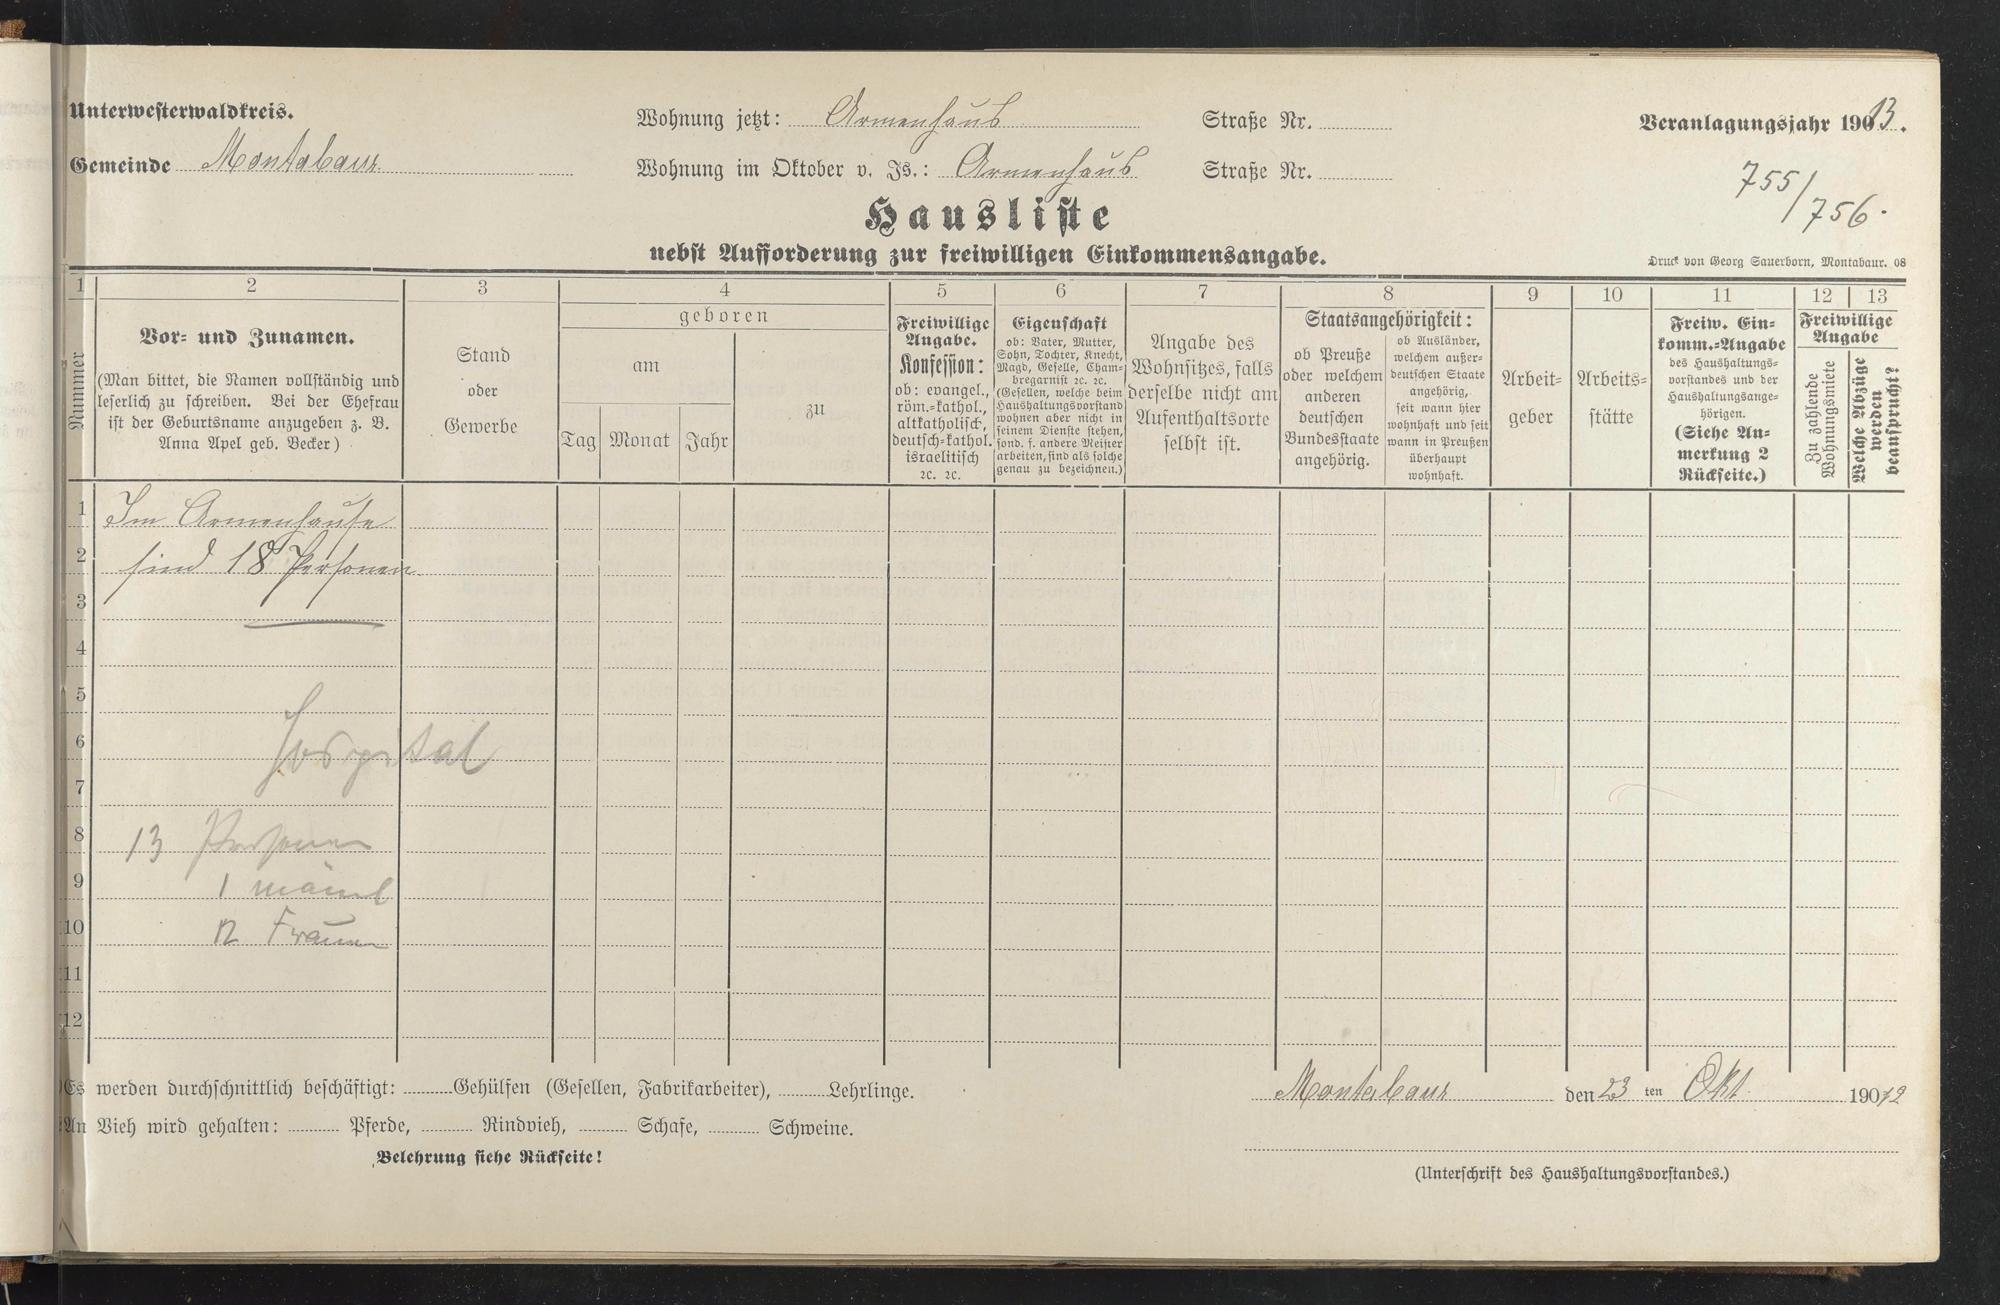 Unterwesterwaldkreis.
Gemeinde Montabaur
Wohnung jetzt: Armenhaus Straße Nr.
Wohnung im Oktober v. Js.: Armenhaus Straße Nr.
Veranlagungsjahr 1913.
755/756.
Hausliste
nebst Aufforderung zur freiwilligen Einkommensangabe.
Druck von Georg Sauerborn, Montabaur. 08
1 2 3 4 5 6 7 8 9 10 11 12 13
Nummer
Vor- und Zunamen.
(Man bittet, die Namen vollständig und
leserlich zu schreiben. Bei der Ehefrau
ist der Geburtsname anzugeben z. B.
Anna Apel geb. Becker)
Stand
oder
Gewerbe
geboren
am
Tag Monat Jahr
zu
Freiwillige
Angabe.
Konfession:
ob: evangel.,
röm.-kathol.,
altkatholisch,
deutsch-kathol.
israelitisch
ꝛc. ꝛc.
Eigenschaft
ob: Vater, Mutter,
Sohn, Tochter, Knecht,
Magd, Geselle, Cham-
bregarnist ꝛc. ꝛc.
(Gesellen, welche beim
Haushaltungsvorstand
wohnen aber nicht in
seinem Dienste stehen,
sond. f. andere Meister
arbeiten, sind als solche
genau zu bezeichnen.)
Angabe des
Wohnsitzes, falls
derselbe nicht am
Aufenthaltsorte
selbst ist.
Staatsangehörigkeit:
ob Preuße
oder welchem
anderen
deutschen
Bundesstaate
angehörig.
ob Ausländer,
welchem außer-
deutschen Staate
angehörig,
seit wann hier
wohnhaft und seit
wann in Preußen
überhaupt
wohnhaft.
Arbeit-
geber
Arbeits-
stätte
Freiw. Ein-
komm.-Angabe
des Haushaltungs-
vorstandes und der
Haushaltungsange-
hörigen.
(Siehe An-
merkung 2
Rückseite.)
Freiwillige
Angabe
Zu zahlende
Wohnungsmiete
Welche Abzüge
werden
beansprucht?
1 Im Armenhause
2 sind 18 Personen
3
4
5
6 Hospital
7
8 13 Personen
9 1 männl
10 12 Frauen
11
12
Es werden durchschnittlich beschäftigt: Gehülfen (Gesellen, Fabrikarbeiter), Lehrlinge.
An Vieh wird gehalten: Pferde, Rindvieh, Schafe, Schweine.
Belehrung siehe Rückseite!
Montabaur den 23 ten Okt. 1912
(Unterschrift des Haushaltungsvorstandes.)